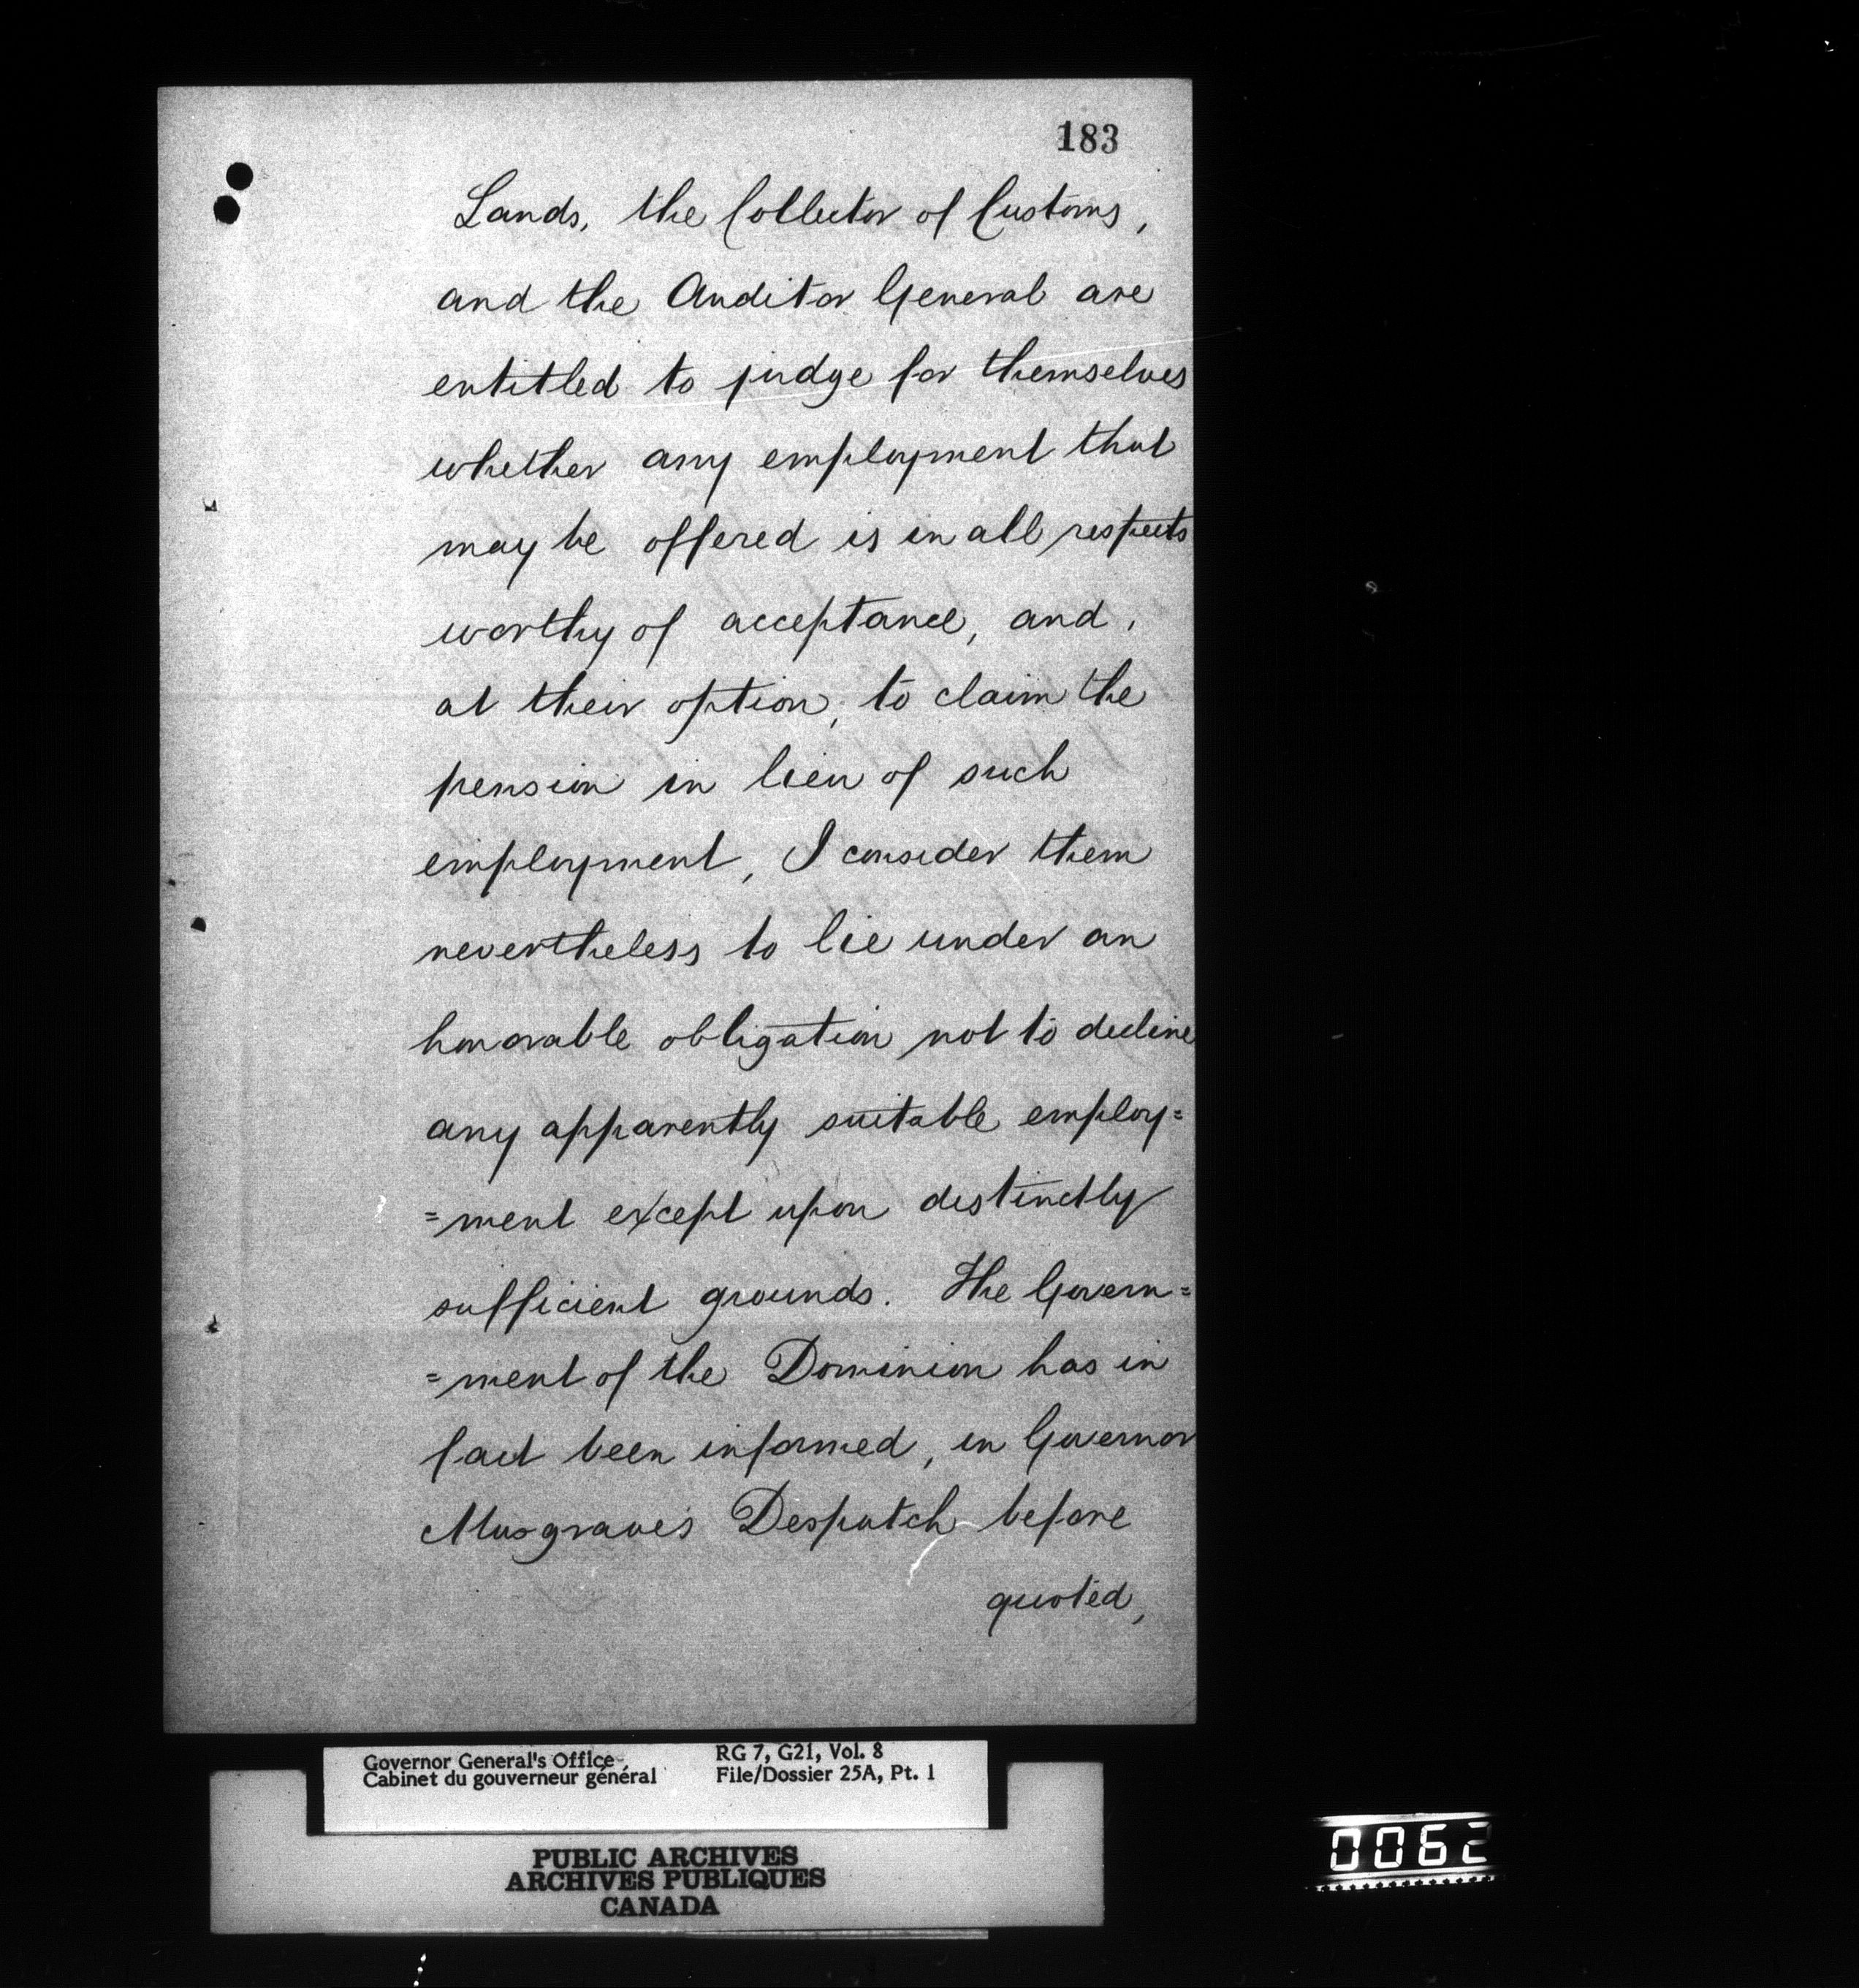 183
Lands, the Collector of Customs,
and the Auditor General are
entitled to judge for themselves
whether any employment that
may be offered is in all respects
worthy of acceptance, and,
at their option, to claim the
pension in lieu of such
employment, I consider them
nevertheless to lie under an
honorable obligation not to decline
any apparently suitable employ=
=ment except upon distinctly
sufficient grounds. The Govern=
=ment of the Dominion has in
fact been informed, in Governor
Musgrave's Despatch before
quoted,
Governor General's Office
Cabinet du gouverneur général
RG 7, G21, Vol. 8
File/Dossier 25A, Pt. 1
PUBLIC ARCHIVES
ARCHIVES PUBLIQUES
CANADA
0062